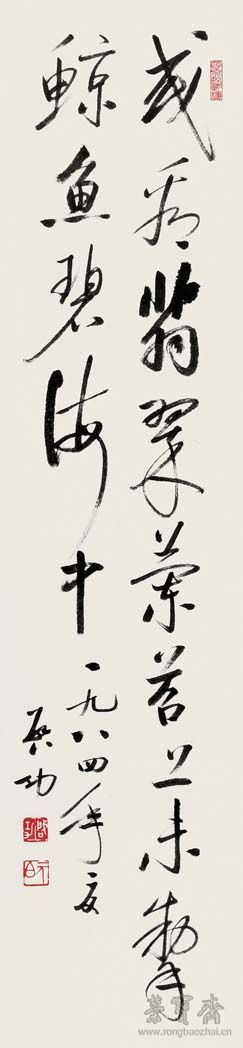 或看翡翠兰苕上未掣
鲸鱼碧海中
一九八四年夏
启功
荣宝斋
www.rongbaozhai.cn